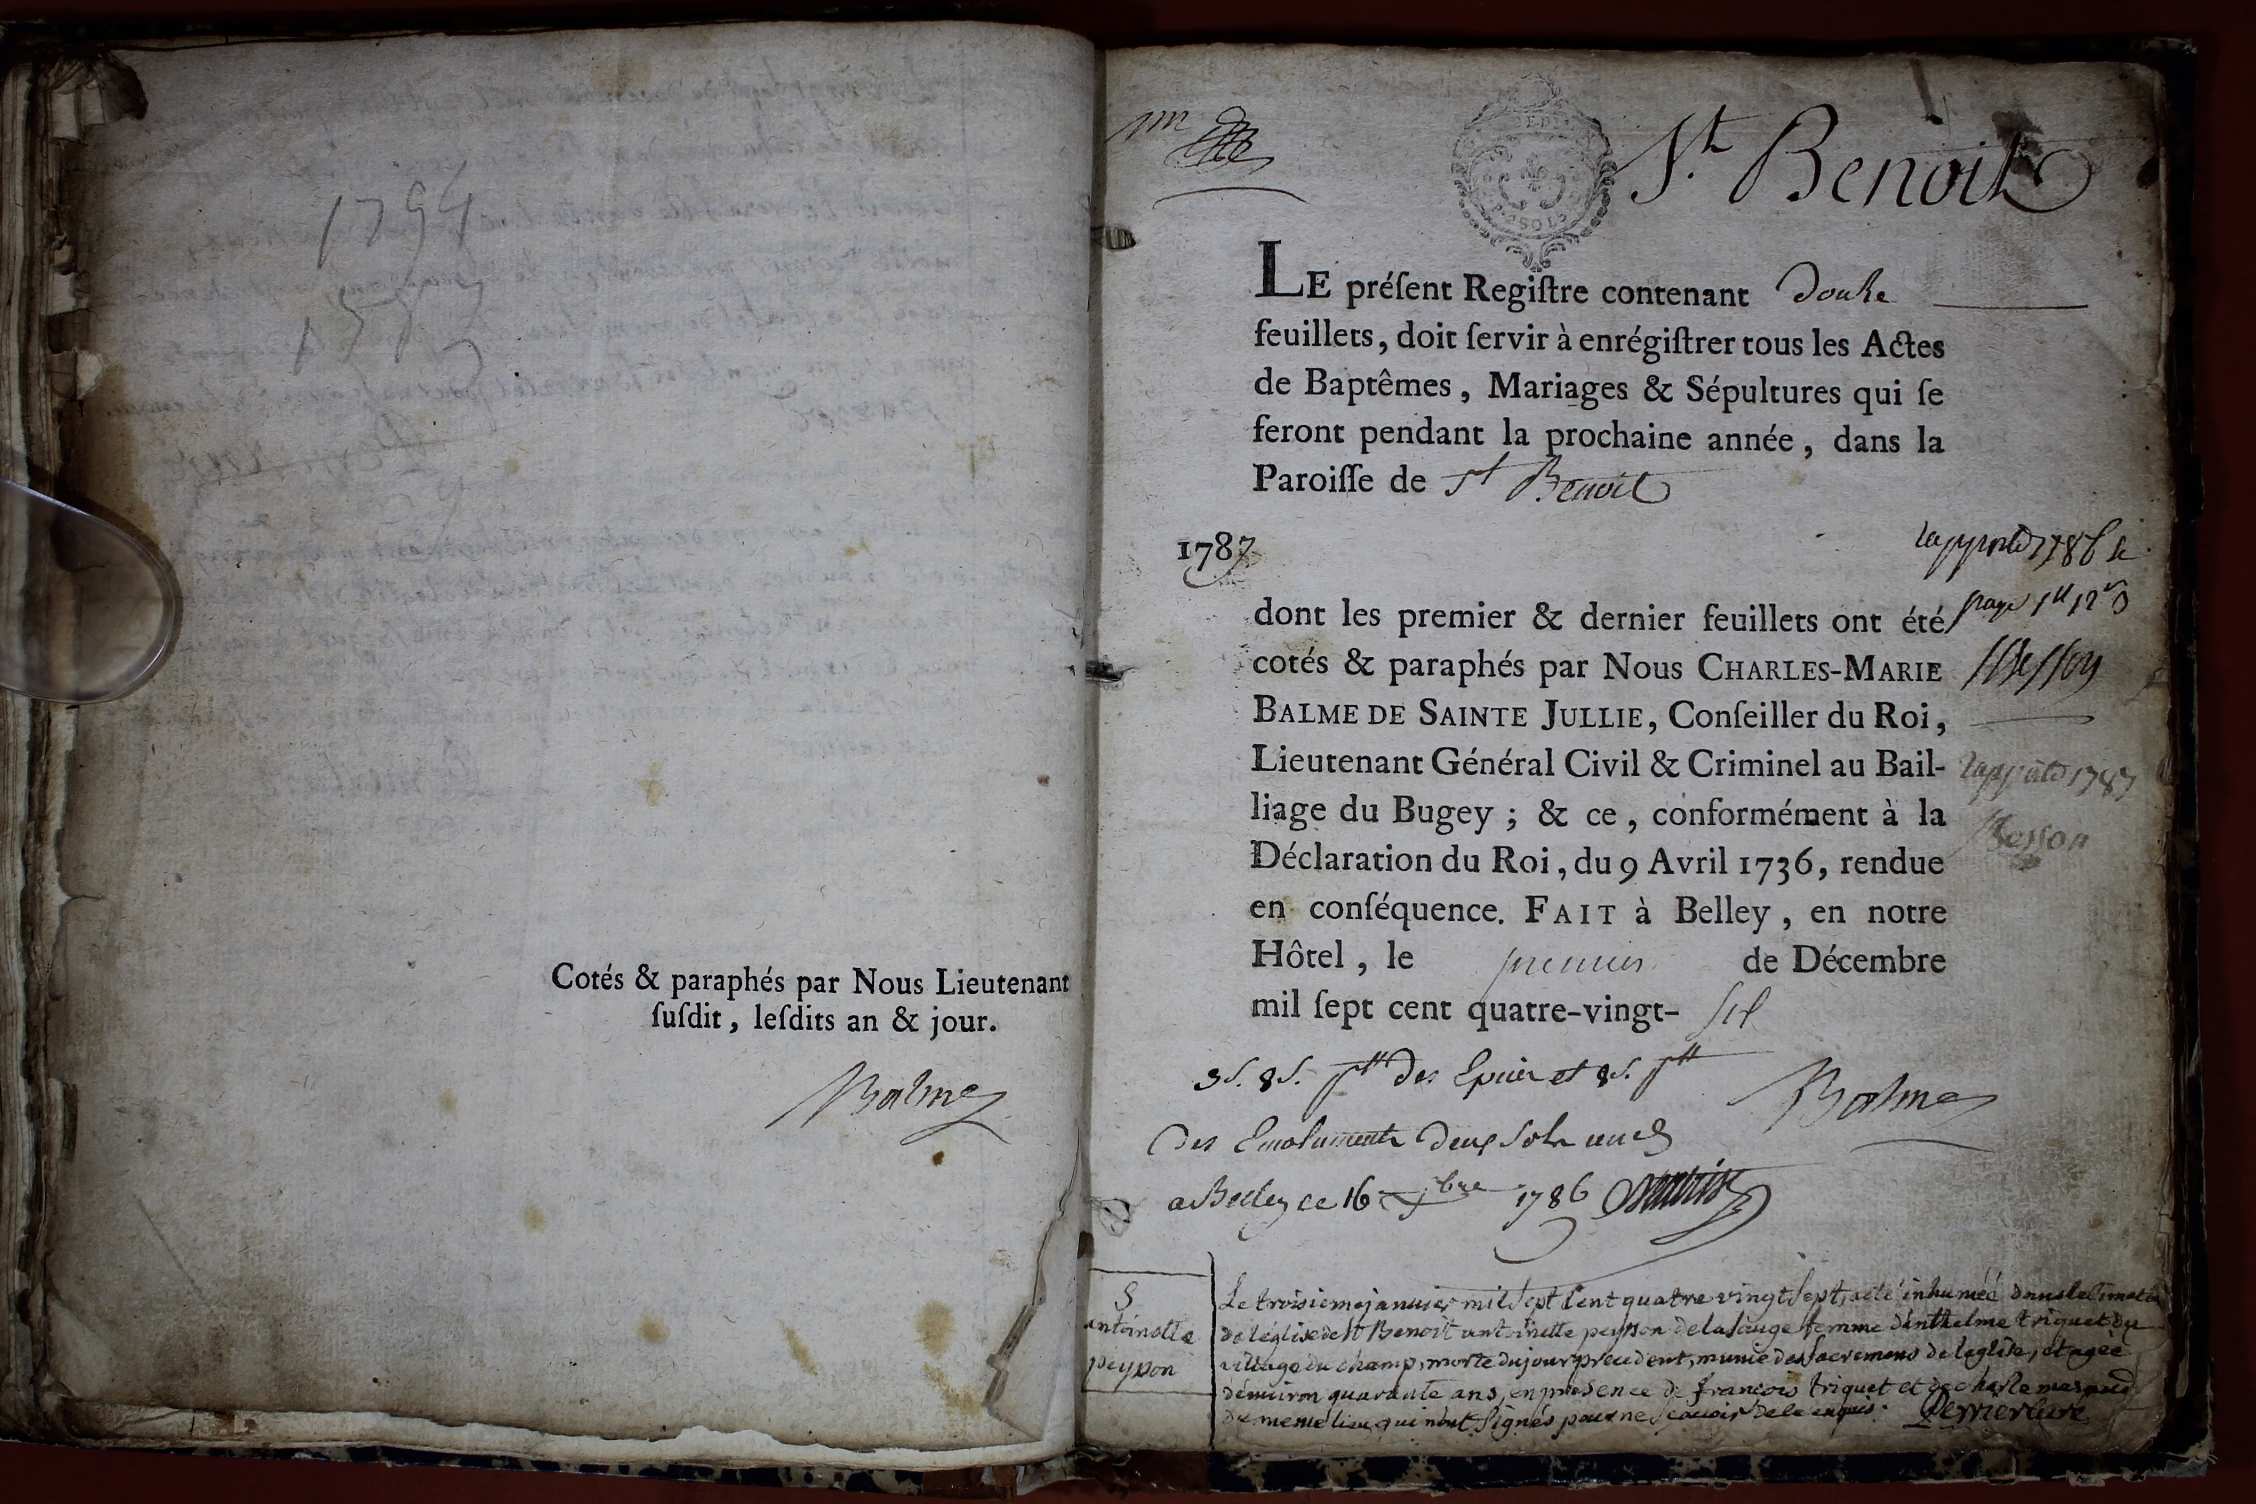 1794
Cotés & paraphés par Nous Lieutenant
ſuſdit, leſdits an & jour.
Balme
1m
St. Benoit
LE préſent Regiſtre contenant douze
feuillets, doit ſervir à enrégiſtrer tous les Actes
de Baptêmes, Mariages & Sépultures qui ſe
feront pendant la prochaine année, dans la
Paroiſſe de St Benoit
1787
dont les premier & dernier feuillets ont été
cotés & paraphés par Nous CHARLES-MARIE
BALME DE SAINTE JULLIE, Conſeiller du Roi,
Lieutenant Général Civil & Criminel au Bail-
liage du Bugey ; & ce, conformément à la
Déclaration du Roi, du 9 Avril 1736, rendue
en conſéquence. FAIT à Belley, en notre
Hôtel, le premier de Décembre
mil ſept cent quatre-vingt- six
rapporté 1786
Besson
rapporté 1787
Besson
3s. 8s. des Epices et 8s.
Balme
Des Emoluments deux sols
a Belley ce 16 1786
S
antoinette
peyson
Le troisieme janvier mil sept cent quatre vingt sept, a été inhumée dans le
de léglise de St Benoit antoinette peyson de la sauge femme danthelme triquet du
village du champ, morte du jour precedent, munie des sacremens de leglise, et agée
denviron quarante ans, en presence de francois triquet et de charle
du meme lieu qui nont signés pour ne scavoir de ce enquis. Perrier curé